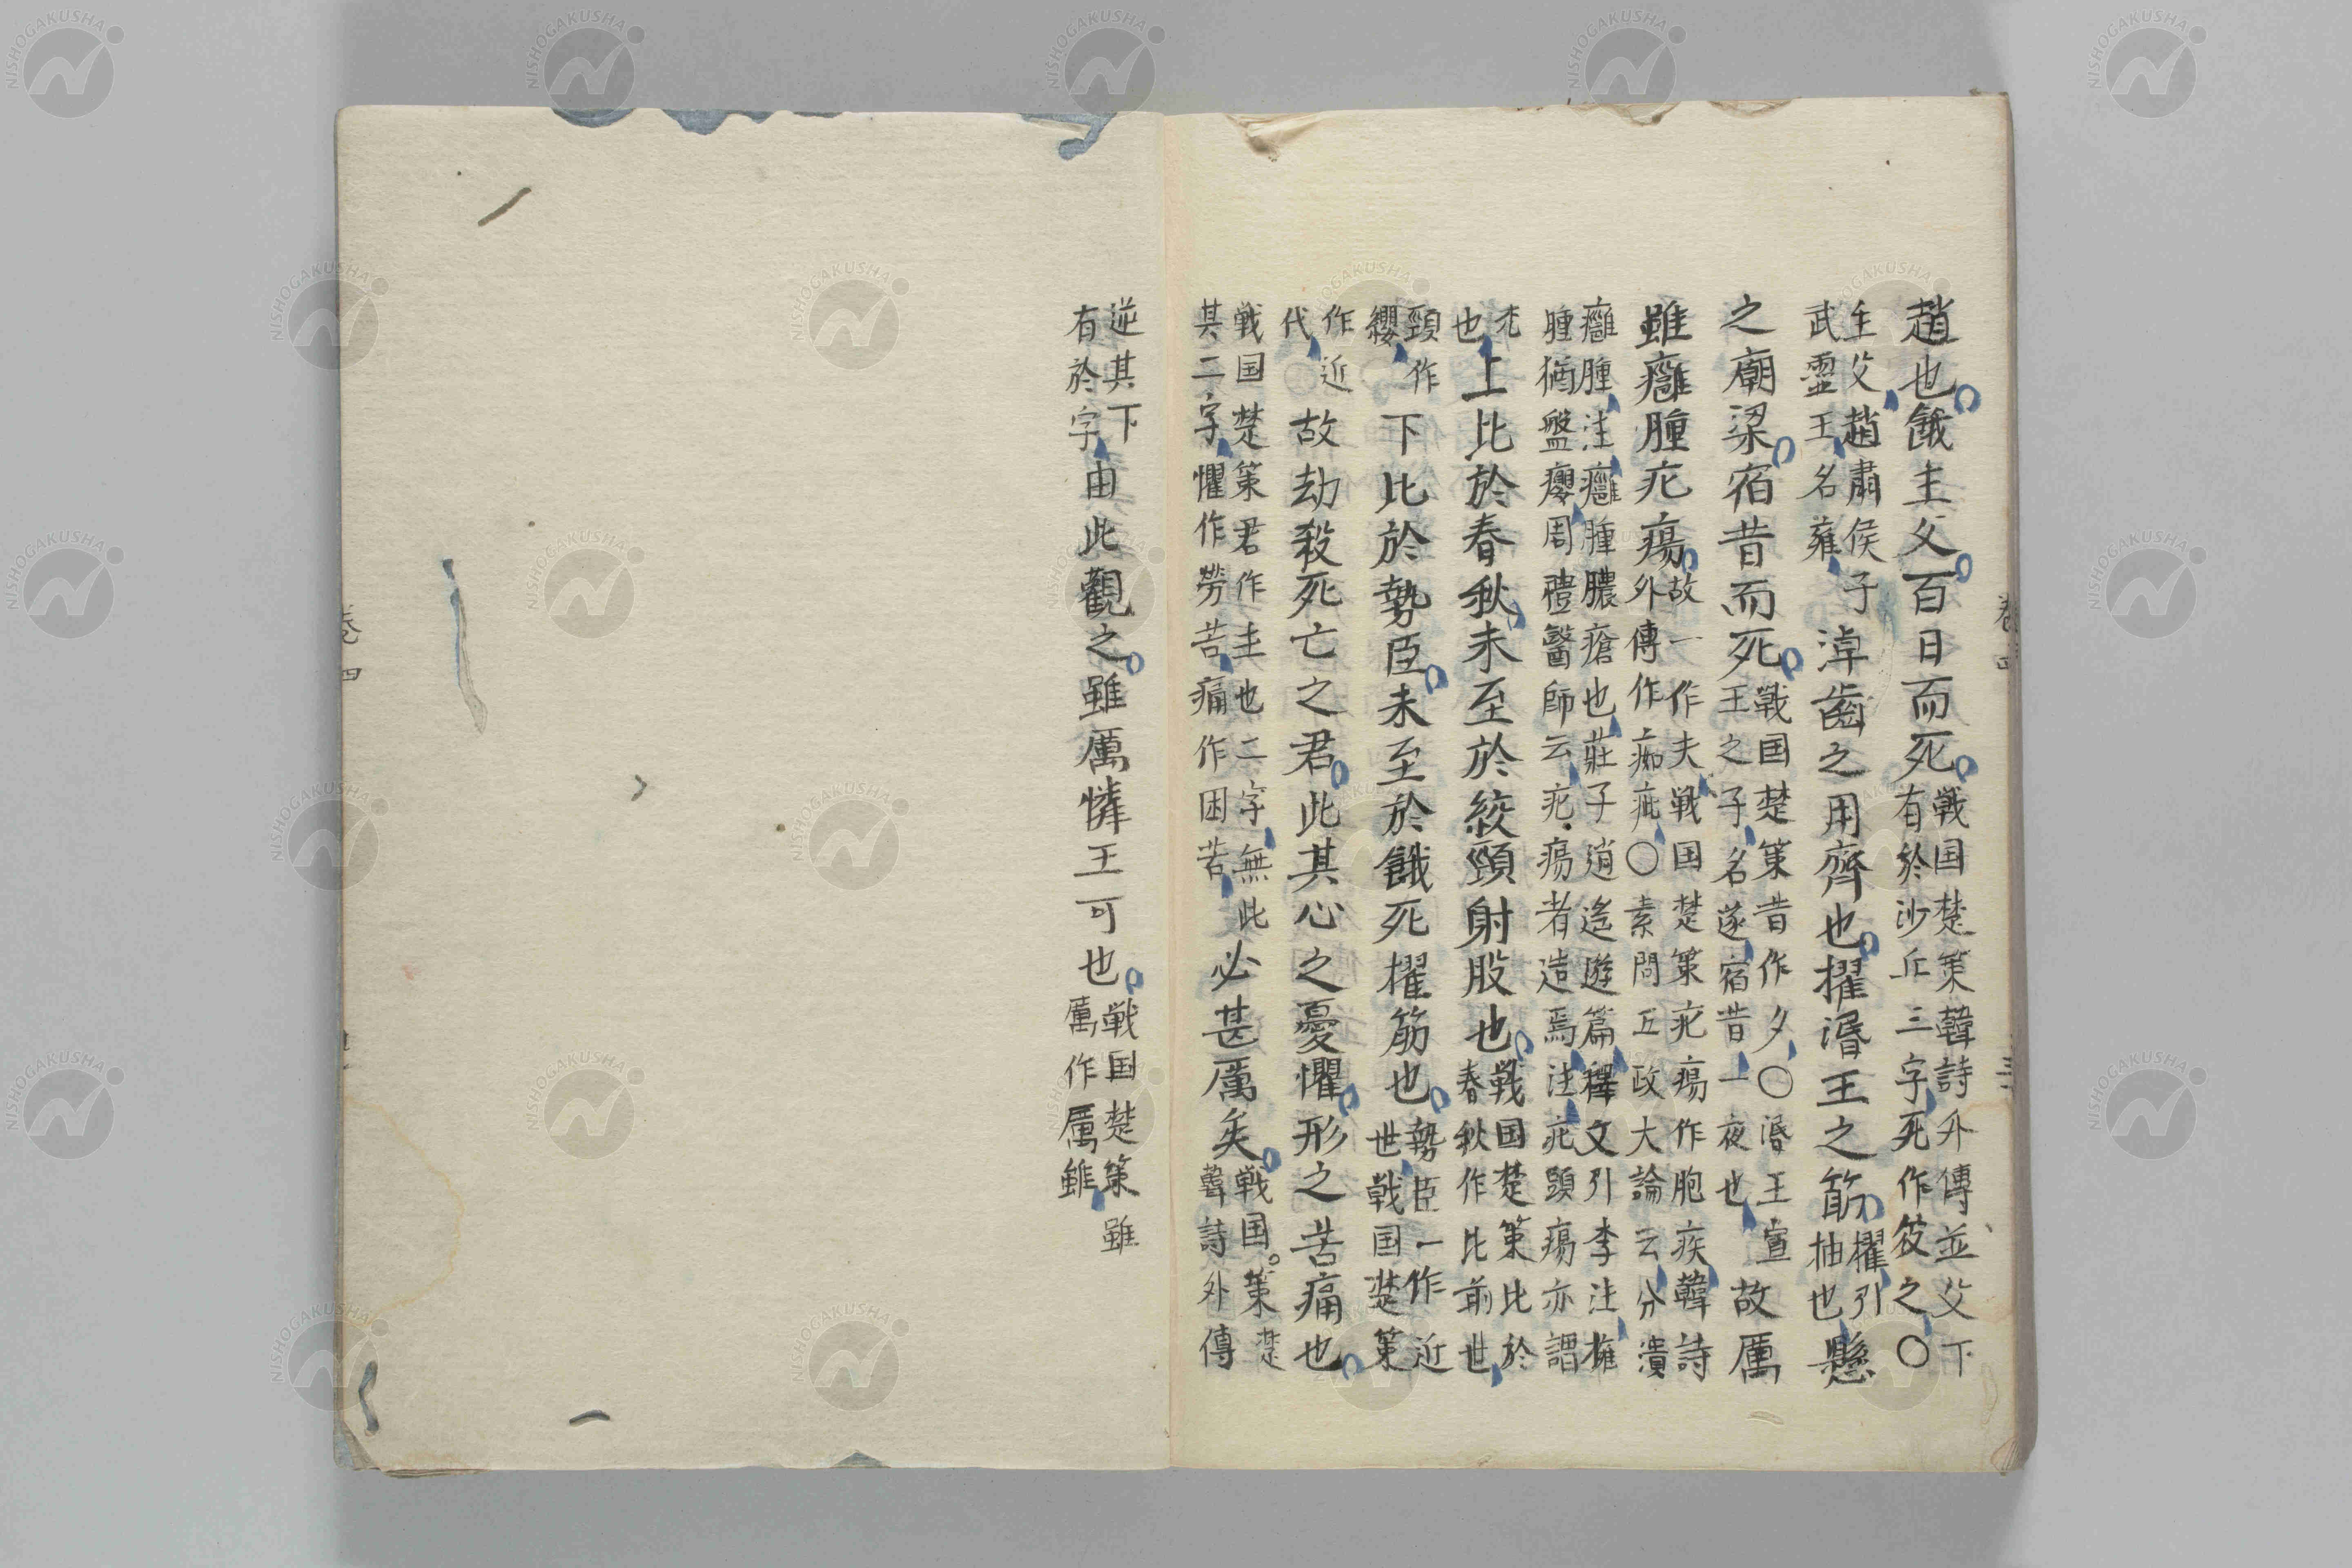 趙也餓主父百日而死戦国楚策韓詩外傳並父下有於沙丘三字死作筊之〇
主父趙肅侯子武靈王名雍淖齒之用齊也擢湣王之筋擢引抽也懸
之廟梁宿昔而死戦国楚策昔作夕〇湣王宣王之子名遂宿昔一夜也故厲
雖癰腫疕瘍故一作夫戦国楚策疕瘍作胞疾韓詩外傳作痂疵〇素問五政大論云分潰
癰腫注癰腫膿瘡也莊子逍遙遊篇釋文引李注擁腫猶盤癭周禮醫師云疕瘍者造焉注疕頭瘍亦謂
禿也上比於春秋未至於絞頸射股也戦国楚策比於春秋作比前世
頸作纓下比於勢臣未至於餓死擢筋也勢臣一作近世戦国楚策
作近代〇故劫殺死亡之君此其心之憂懼形之苦痛也
戦国楚策君作主也二字無此其二字懼作勞苦痛作困苦必甚厲矣戦国策楚韓詩外傳
逆其下有於字由此觀之雖厲憐王可也戦国楚策雖厲作厲雖
卷四
NISHOGAKUSHA